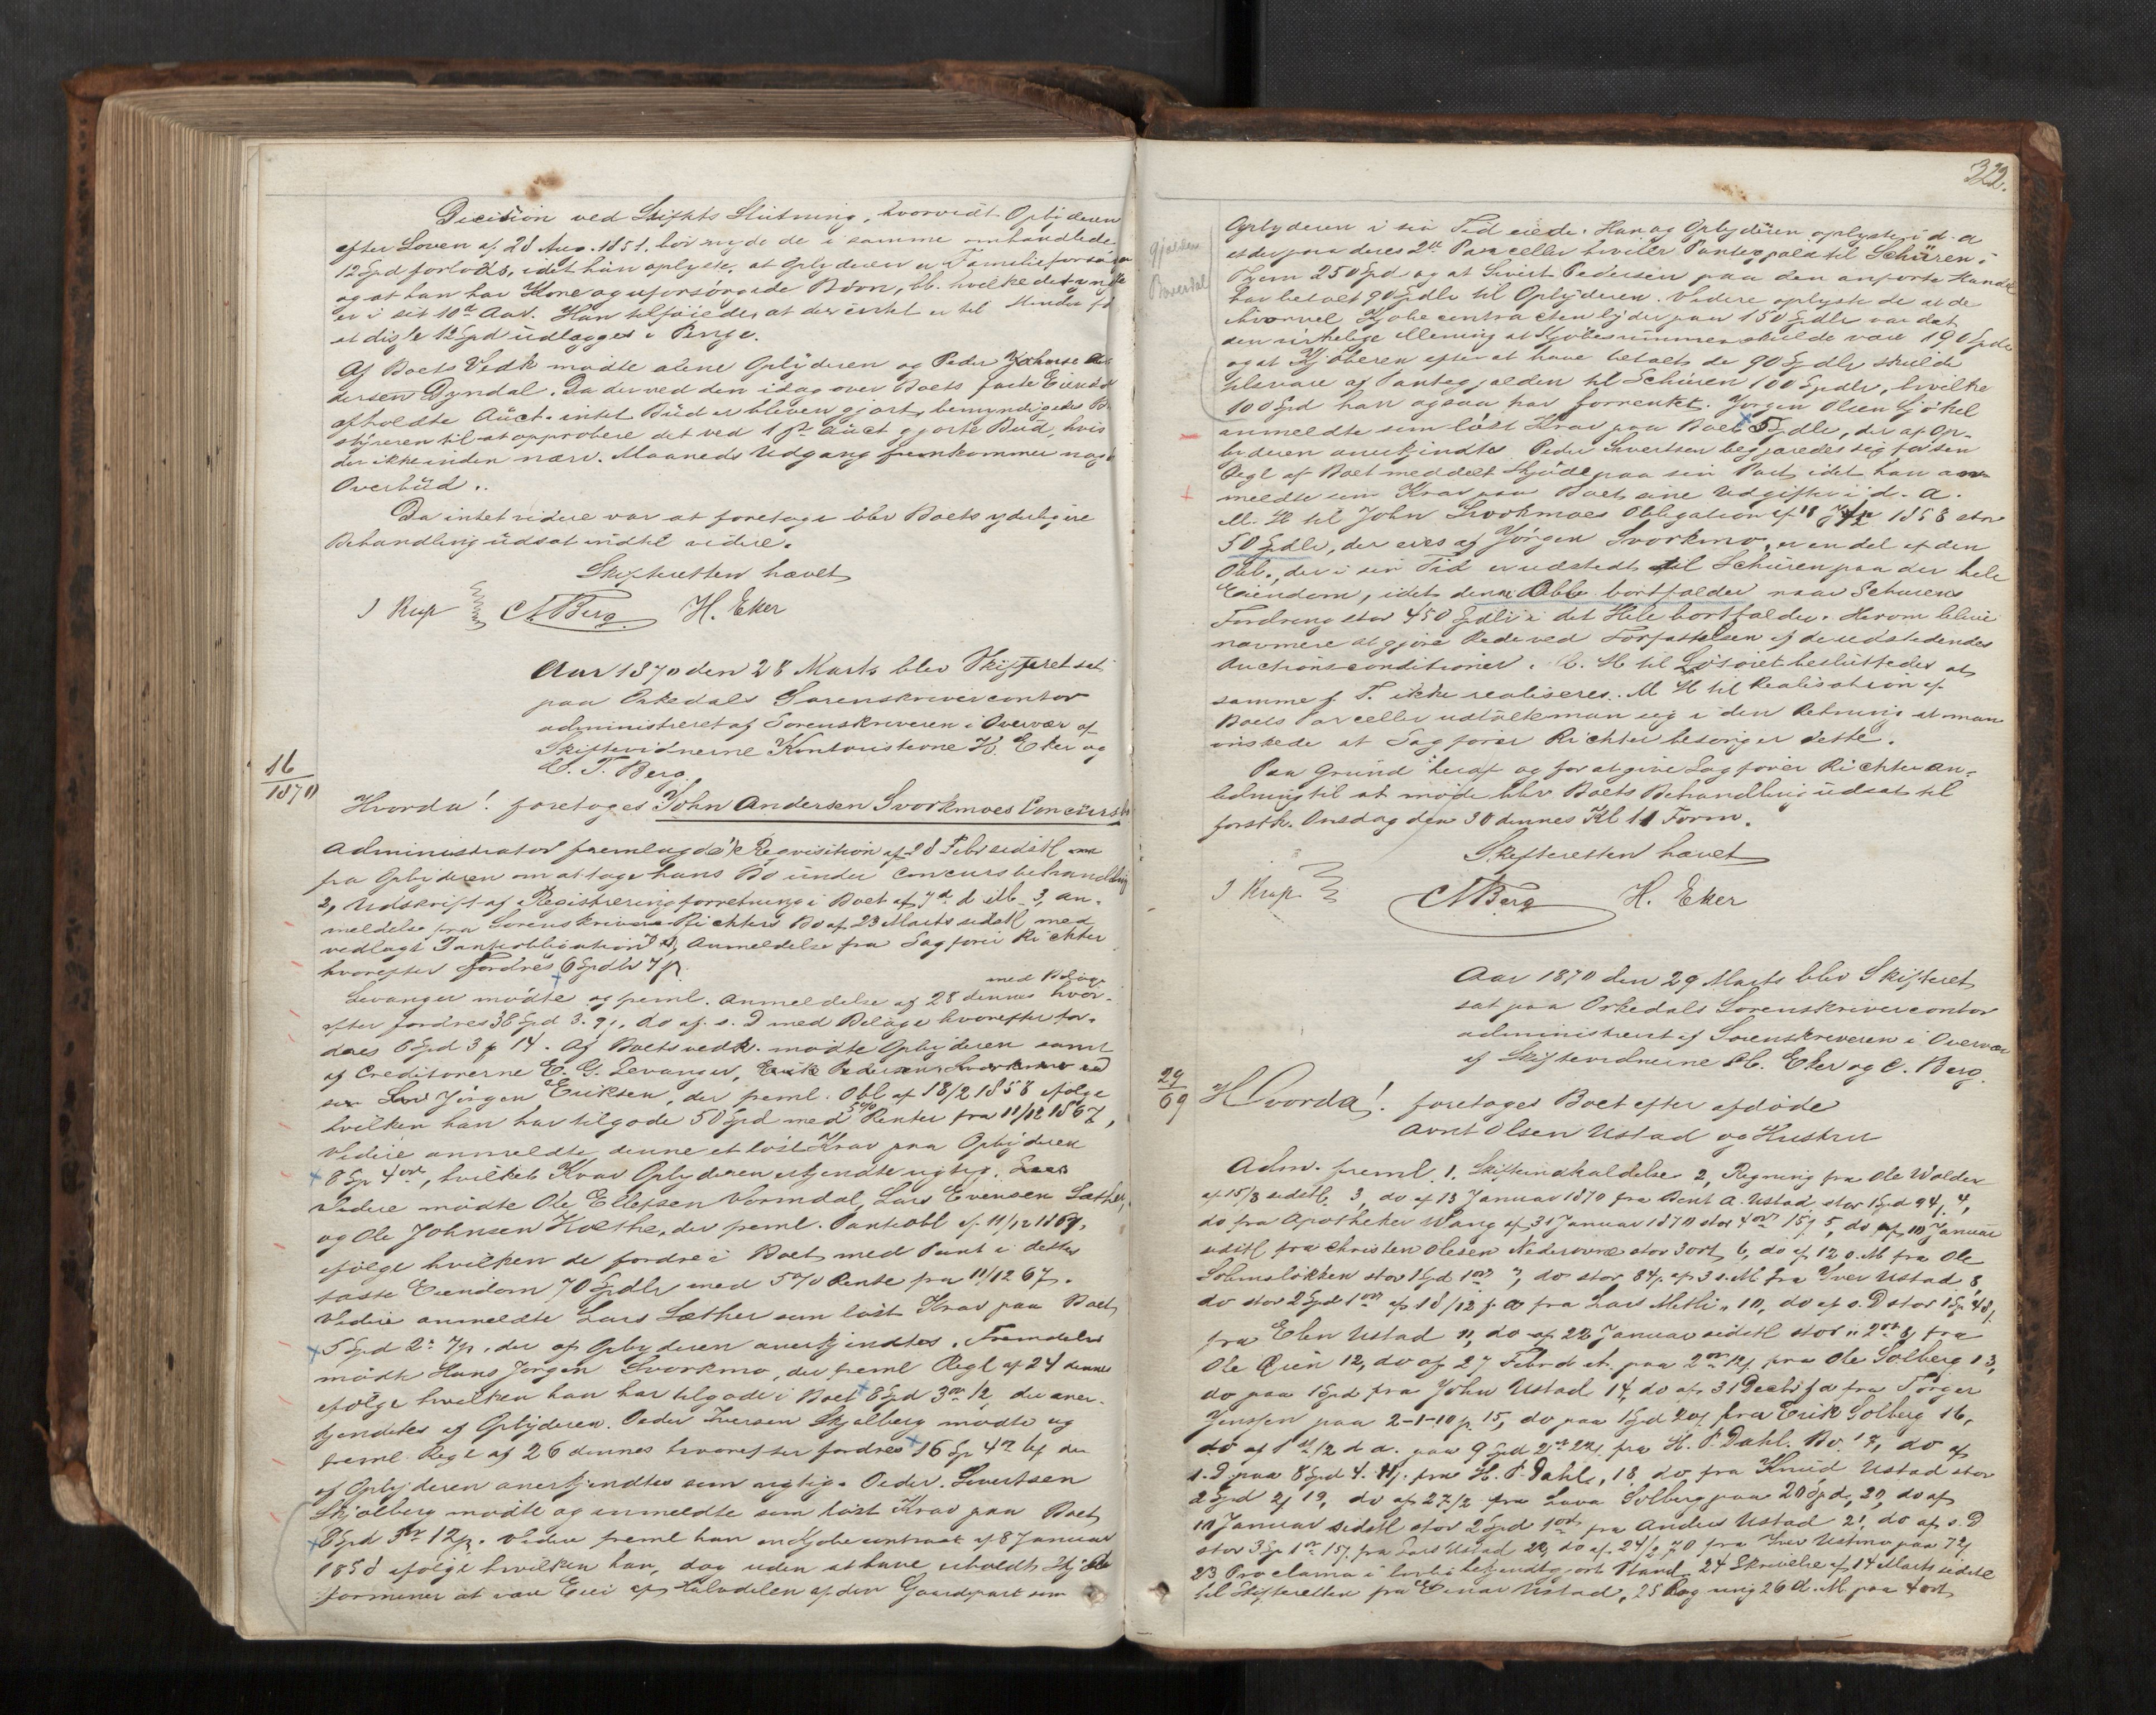 Decision ved Skiftets Slutning, hvorvidt Opbyderen
efter Loven af 28 Aug. 1851. bør nyde de i samme omhandlede
12 Spd forlods, idet han oplyste, at Opbyderen er Familieforsørger
og at han har Kone og uforsørgede Børn, bl. hvilke det yngste
er i sit 10de Aar. Han tilføiede, at der intet er til Hinder for
at disse 12 Spd udlægges i Penge.
Af Boets Vedk mødte alene Opbyderen og Peder
dersen Dyrndal. Da der ved den idag over Boets faste Eiendom
afholdte Auct. intet Bud er bleven gjort, bemyndigedes Be-
styreren til at approbere det ved 1ste Auct gjorte Bud, hvis
der ikke inden nærv. Maaneds Udgang fremkommer noget
Overbud.
Da intet videre var at foretage blev Boets yderligere
Behandling udsat indtil videre.
Skifteretten hævet
J Krup C A Berg H. Eker
Aar 1870 den 28 Marts blev Skifteret sat
paa Orkedals Sorenskrivercontor
administreret af Sorenskriveren i Overvær af
Skiftevidnerne Kontoristerne H. Eker og
C. T. Berg.
16/1870
Hvorda! foretoges John Andersen Svorkmoes Concursbo
Administrator fremlagde 1, Reqvisition af 28 Febr sidstl
fra Opbyderen om at tage hans Bo under Concursbehandling
2, Udskrift af Registreringsforretning i Boet af 7de d. M. 3, An-
meldelse fra Sorenskriver Richters Bo af 23 Marts sidstl med
vedlagt Panteobligation 4, Anmeldelse fra Sagfører Richter
hvorefter fordres 6 Spdlr 7 s.
Levanger mødte og freml. Anmeldelse af 28 dennes med Bilag hvor-
efter fordres 38 Spd 3. 9 s, do af s. D med Bilage hvorefter for-
dres 6 Spd 3 14. Af Boets vedk. mødte Opbyderen samt
af Creditorerne E. G. Levanger, Erik Pedersen Svorkmo ved
søn Jørgen Eriksen, der freml. Obl af 18/2 1858 ifølge
hvilken han har tilgode 50 Spd med 5% Renter fra 11/12 1867,
videre anmeldte denne et løst Krav paa Opbyderen
8 Sp 4 ort, hvilket Krav Opbyderen erkjendte rigtigt.
Videre mødte Ole Ellefsen Vormdal, Lars Evensen Sæther,
og Ole Johnsen Hoethe, der freml. Panteobl af 11/12 1867,
ifølge hvilken de fordrer i Boet med Pant i dettes
faste Eiendom 70 Spdlr med 5% Rente fra 11/12 67.
Videre anmeldte Lars Sæther som løst Krav paa Boet
5 Spd 2. 7 s, der af Opbyderen anerkjendtes. Fremdeles
mødte Hans Jørgen Svorkmo, der freml Regl af 24 dennes
ifølge hvilken han har tilgode i Boet 8 Spd 3 ort 12, der aner-
kjendtes af Opbyderen. Peder Iversen Skjølberg mødte og
freml. Regl af 26 dennes hvorefter fordres 16 Sp 4 der
af Opbyderen anerkjendtes som rigtig. Peder Sivertsen
Skjølberg mødte og anmeldte som løst Krav paa Boet
8 Spd 3 12 s. Videre freml han en Kjøbecontract af 8 Januar
1858 ifølge hvilken han, dog uden at have erholdt Skjøde
formener at være Eier af Halvdelen af den Gaardpart som
322.
Gjælden
Opbyderen i sin Tid eiede. Han og Opbyderen oplyste i d. A
at der paa deres 2de Parceller hviler Pantegjæld til Schüren i
Thjem 250 Spd og at Sivert Pedersen paa den anførte Handel
har betalt 90 Spdlr til Opbyderen. Videre oplyste de at de
uagtet Kjøbecontracten lyder paa 150 Spdlr var det
den virkelige Mening at Kjøbesummen skulde være 190 Spdlr
og at Kjøberen efter at have betalt de 90 Spdlr skulde
tilsvare af Pantegjælden til Schüren 100 Spdlr, hvilke
100 Spd han ogsaa har forrentet. Jørgen Olsen Sjøkel
anmeldte som løst Krav paa Boet 5 Spdlr, der af Op-
byderen anerkjendtes Peder Sivertsen begjærede sig for sen
Regl af Boet meddelt Skjøde paa sin Part, idet han an-
meldte som Krav paa Boet sine Udgifter i d. A.
M. H til John Svorkmoes Obligation af 18 1858 stor
50 Spdlr, der eies af Jørgen Svorkmo, er en del af den
Obl., der i sin Tid er udstedt til Schüren paa den hele
Eiendom, idet denne Obl. bortfalder naar Schürens
Fordring stor 450 Spdlr i det Hele bortfalder. Herom blive
nærmere at gjøre Rede ved Forfattelsen af de udstedendes
Auctionsconditioner. M. H til Løsøret besluttedes at
samme p. T. ikke realiseres. M H til Realisation af
Boets Parceller udtalte man sig i den Retning at man
ønskede at Sagfører Richter besørger dette.
Paa Grund heraf og for at give Sagfører Richter An-
ledning til at møde blev Boets Behandling udsat til
førstk. Onsdag den 30 dennes Kl 11 Form.
Skifteretten hævet
J Krup C A Berg H. Eker
Aar 1870 den 29 Marts blev Skifteret
sat paa Orkedals Sorenskrivercontor
administreret af Sorenskriveren i Overvær
af Skiftevidnerne H. Eker og C. Berg.
29/69
Hvorda! foretoges Boet efter afdøde
Arnt Olsen Ustad og Hustru
Adm. freml. 1. Skifteindkaldelse 2, Regning fra Ole Wolden
af 15/3 sidstl. 3, do af 13 Januar 1870 fra Bent A. Ustad, stor 1 Spd 94 s, 4,
do fra Apotheker Wang af 31 Januar 1870 stor 4 ort 15 s 5, do af 10 Januar
sidstl fra Christen Olesen Nederovne stor 3 ort 6, do af 12 s. M fra Ole
Solemsløkken stor 1 Spd 1 ort 7, do stor 84 s. af 3 s. M fra Iver Ustad 8,
do stor 2 Spd 1 ort af 18/12 f. A fra Lars Metli 10, do af s. D stor 1 Sp 48 s
fra Elen Ustad 11, do af 22 Januar sidstl stor 2 ort 8 s fra
Ole Qvein 12, do af 27 Febr d. A. paa 2 ort 12 s fra Ole Solberg 13,
do paa 1 Spd fra John Ustad 14, do af 31 Decbr f A fra Torger
Jenssen paa 2-1-10 s. 15, do paa 1 Spd 20 s fra Erik Solberg 16,
do af 1st/2 d A. paa 9 Spd 2 ort 22 s. fra H. P. Dahl. Bo. 17, do af
s. D paa 8 Spd 4. 11 s. fra H. P. Dahl, 18 do fra Knud Ustad stor
2 Spd 2 s 19, do af 27/2 fra Lava Solberg paa 20 Spd, 20, do af
10 Januar sidstl stor 2 Spd 1 ort fra Anders Ustad 21 do af s. D
stor 3 Sp 1 ort 15 s. fra Lars Ustad 22, do af 24/2 70 fra Iver Ustmo paa 72 s
23 Proclama i lovlig bekjendtgjort Stand. 24 Skrivelse af 14 Marts sidstl
til Skifteretten fra Einar Ustad, 25 Regning 26 d. M. paa 4 ort